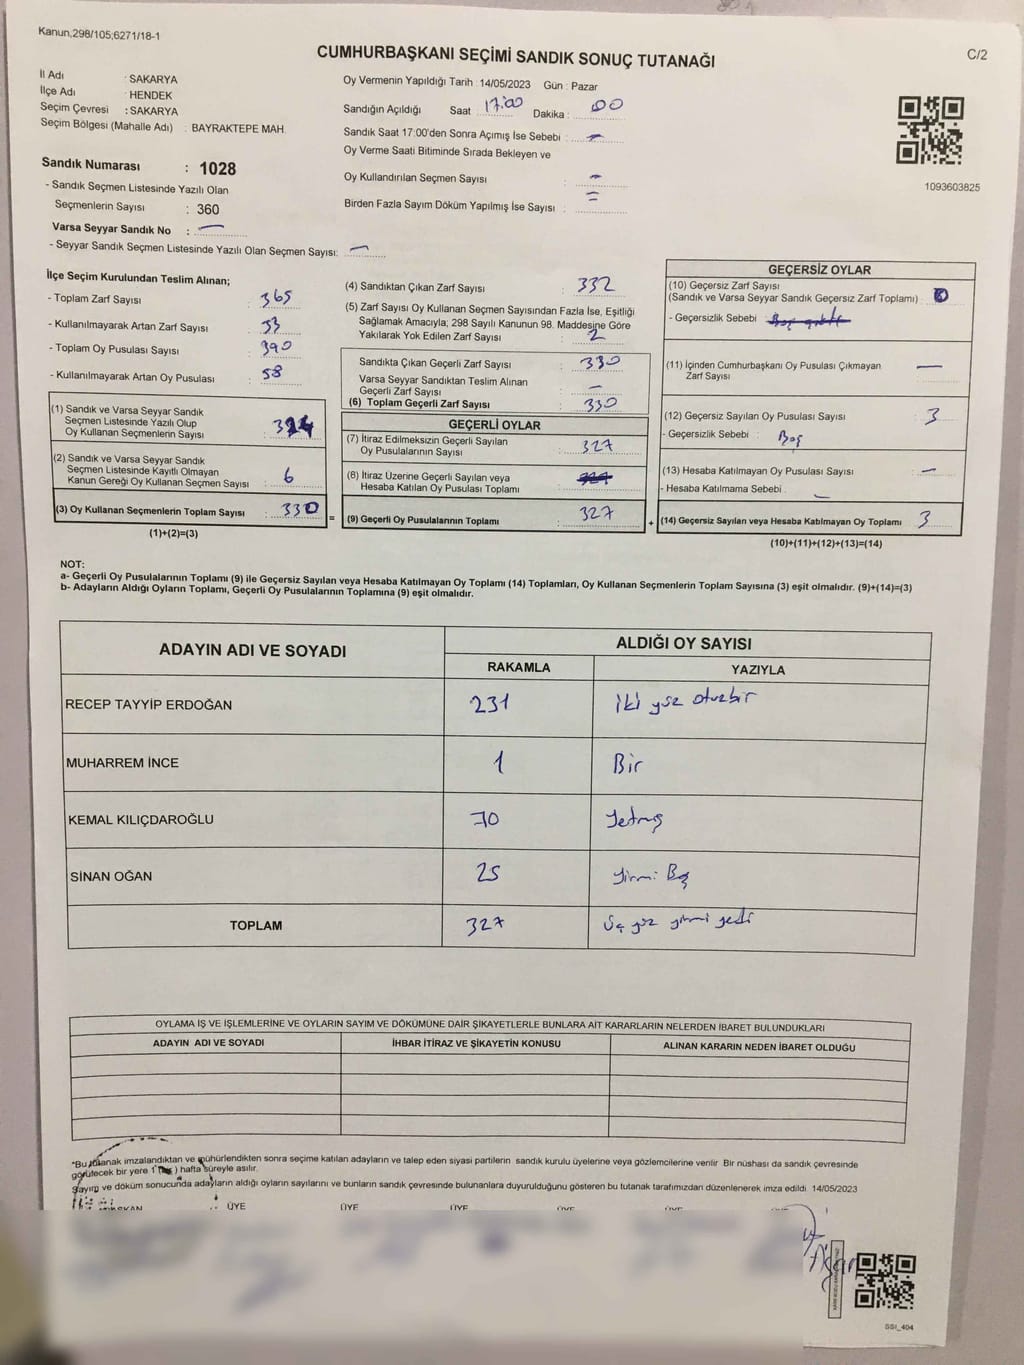 Kanun,298/105;6271/18-1
C/2
CUMHURBAŞKANI SEÇİMİ SANDIK SONUÇ TUTANAĞI
İl Adı : SAKARYA
İlçe Adı : HENDEK
Seçim Çevresi : SAKARYA
Seçim Bölgesi (Mahalle Adı) : BAYRAKTEPE MAH.
Sandık Numarası : 1028
- Sandık Seçmen Listesinde Yazılı Olan
Seçmenlerin Sayısı : 360
Varsa Seyyar Sandık No : —
- Seyyar Sandık Seçmen Listesinde Yazılı Olan Seçmen Sayısı: —
Oy Vermenin Yapıldığı Tarih : 14/05/2023 Gün : Pazar
Sandığın Açıldığı Saat 17:00 Dakika : 00
Sandık Saat 17:00'den Sonra Açımış İse Sebebi : —
Oy Verme Saati Bitiminde Sırada Bekleyen ve
Oy Kullandırılan Seçmen Sayısı : —
Birden Fazla Sayım Döküm Yapılmış İse Sayısı : =
1093603825
İlçe Seçim Kurulundan Teslim Alınan;
- Toplam Zarf Sayısı : 365
- Kullanılmayarak Artan Zarf Sayısı : 33
- Toplam Oy Pusulası Sayısı : 390
- Kullanılmayarak Artan Oy Pusulası : 58
(1) Sandık ve Varsa Seyyar Sandık
Seçmen Listesinde Yazılı Olup
Oy Kullanan Seçmenlerin Sayısı : 324
(2) Sandık ve Varsa Seyyar Sandık
Seçmen Listesinde Kayıtlı Olmayan
Kanun Gereği Oy Kullanan Seçmen Sayısı : 6
(3) Oy Kullanan Seçmenlerin Toplam Sayısı : 330
(1)+(2)=(3)
=
(4) Sandıktan Çıkan Zarf Sayısı : 332
(5) Zarf Sayısı Oy Kullanan Seçmen Sayısından Fazla İse, Eşitliği
Sağlamak Amacıyla; 298 Sayılı Kanunun 98. Maddesine Göre
Yakılarak Yok Edilen Zarf Sayısı : 2
Sandıkta Çıkan Geçerli Zarf Sayısı : 330
Varsa Seyyar Sandıktan Teslim Alınan
Geçerli Zarf Sayısı : —
(6) Toplam Geçerli Zarf Sayısı : 330
GEÇERLİ OYLAR
(7) İtiraz Edilmeksizin Geçerli Sayılan
Oy Pusulalarının Sayısı : 327
(8) İtiraz Üzerine Geçerli Sayılan veya
Hesaba Katılan Oy Pusulası Toplamı :
(9) Geçerli Oy Pusulalarının Toplamı : 327
+
GEÇERSİZ OYLAR
(10) Geçersiz Zarf Sayısı
(Sandık ve Varsa Seyyar Sandık Geçersiz Zarf Toplamı) :
- Geçersizlik Sebebi :
(11) İçinden Cumhurbaşkanı Oy Pusulası Çıkmayan
Zarf Sayısı : —
(12) Geçersiz Sayılan Oy Pusulası Sayısı : 3
- Geçersizlik Sebebi : Boş
(13) Hesaba Katılmayan Oy Pusulası Sayısı : —
- Hesaba Katılmama Sebebi : —
(14) Geçersiz Sayılan veya Hesaba Katılmayan Oy Toplamı : 3
(10)+(11)+(12)+(13)=(14)
NOT:
a- Geçerli Oy Pusulalarının Toplamı (9) ile Geçersiz Sayılan veya Hesaba Katılmayan Oy Toplamı (14) Toplamları, Oy Kullanan Seçmenlerin Toplam Sayısına (3) eşit olmalıdır. (9)+(14)=(3)
b- Adayların Aldığı Oyların Toplamı, Geçerli Oy Pusulalarının Toplamına (9) eşit olmalıdır.
ADAYIN ADI VE SOYADI
ALDIĞI OY SAYISI
RAKAMLA YAZIYLA
RECEP TAYYİP ERDOĞAN 231 iki yüz otuzbir
MUHARREM İNCE 1 Bir
KEMAL KILIÇDAROĞLU 70 Yetmiş
SİNAN OĞAN 25 Yirmi Beş
TOPLAM 327 Üç yüz yirmi yedi
OYLAMA İŞ VE İŞLEMLERİNE VE OYLARIN SAYIM VE DÖKÜMÜNE DAİR ŞİKAYETLERLE BUNLARA AİT KARARLARIN NELERDEN İBARET BULUNDUKLARI
ADAYIN ADI VE SOYADI İHBAR İTİRAZ VE ŞİKAYETİN KONUSU ALINAN KARARIN NEDEN İBARET OLDUĞU
*Bu tutanak imzalandıktan ve mühürlendikten sonra seçime katılan adayların ve talep eden siyasi partilerin sandık kurulu üyelerine veya gözlemcilerine verilir. Bir nüshası da sandık çevresinde
görülecek bir yere 1 ) hafta süreyle asılır.
Sayım ve döküm sonucunda adayların aldığı oyların sayılarını ve bunların sandık çevresinde bulunanlara duyurulduğunu gösteren bu tutanak tarafımızdan düzenlenerek imza edildi. 14/05/2023
ÜYE ÜYE ÜYE ÜYE ÜYE ÜYE
SSI_404